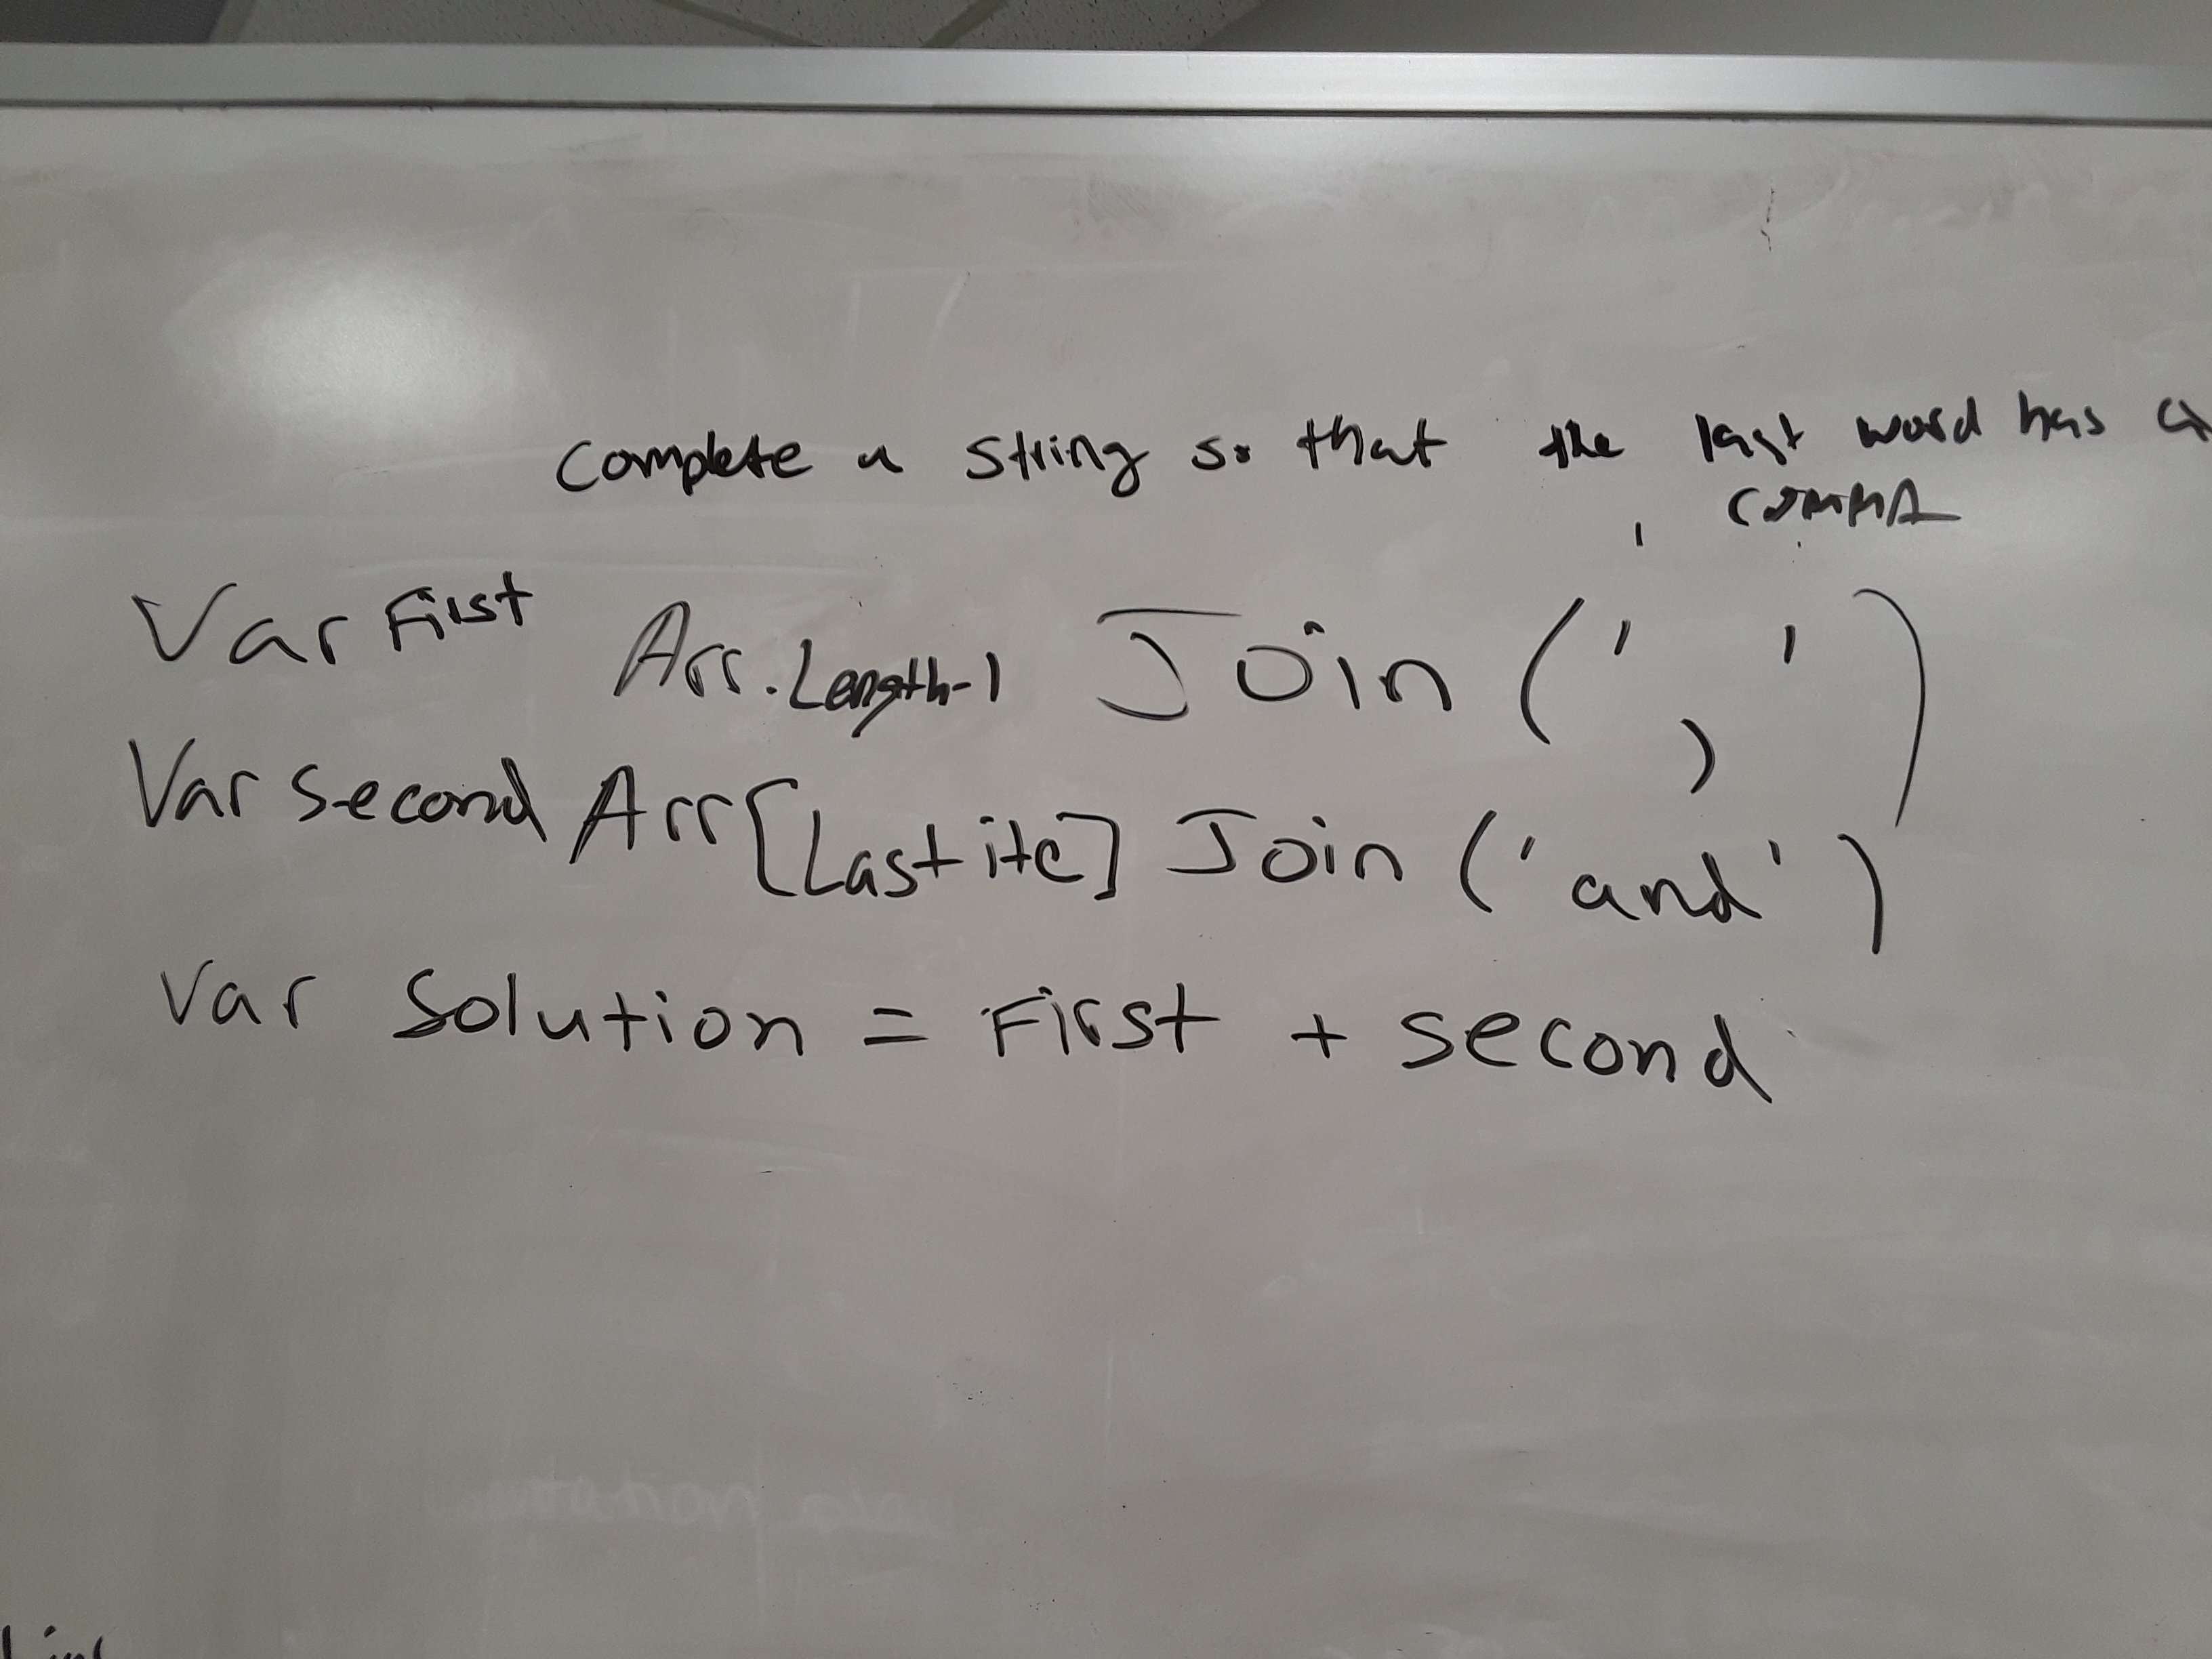 Complete a string so that the last word has a
COMMA
Var First Arr.Length-1 Join (' , ')
Var second Arr[Last ite] Join ('and')
Var Solution = First + second